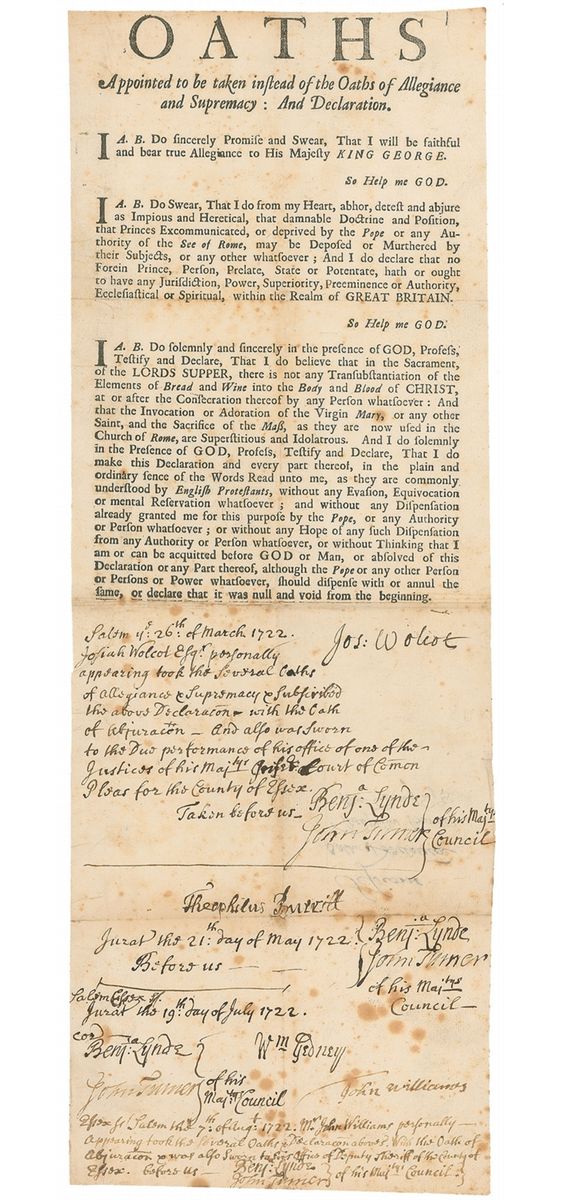 OATHS
Appointed to be taken inſtead of the Oaths of Allegiance
and Supremacy: And Declaration.
I A. B. Do ſincerely Promiſe and Swear, That I will be faithful
and bear true Allegiance to His Majeſty KING GEORGE.
So Help me GOD.
I A. B. Do Swear, That I do from my Heart, abhor, deteſt and abjure
as Impious and Heretical, that damnable Doctrine and Poſition,
that Princes Excommunicated, or deprived by the Pope or any Au-
thority of the See of Rome, may be Depoſed or Murthered by
their Subjects, or any other whatſoever; And I do declare that no
Forein Prince, Perſon, Prelate, State or Potentate, hath or ought
to have any Juriſdiction, Power, Superiority, Preeminence or Authority,
Eccleſiaſtical or Spiritual, within the Realm of GREAT BRITAIN.
So Help me GOD.
I A. B. Do ſolemnly and ſincerely in the preſence of GOD, Profeſs,
Teſtify and Declare, That I do believe that in the Sacrament,
of the LORDS SUPPER, there is not any Tranſubſtantiation of the
Elements of Bread and Wine into the Body and Blood of CHRIST,
at or after the Conſecration thereof by any Perſon whatſoever: And
that the Invocation or Adoration of the Virgin Mary, or any other
Saint, and the Sacrifice of the Maſs, as they are now uſed in the
Church of Rome, are Superſtitious and Idolatrous. And I do ſolemnly
in the Preſence of GOD, Profeſs, Teſtify and Declare, That I do
make this Declaration and every part thereof, in the plain and
ordinary ſence of the Words Read unto me, as they are commonly
underſtood by Engliſh Proteſtants, without any Evaſion, Equivocation
or mental Reſervation whatſoever; and without any Diſpenſation
already granted me for this purpoſe by the Pope, or any Authority
or Perſon whatſoever; or without any Hope of any ſuch Diſpenſation
from any Authority or Perſon whatſoever, or without Thinking that I
am or can be acquitted before GOD or Man, or abſolved of this
Declaration or any Part thereof, although the Pope or any other Perſon
or Perſons or Power whatſoever, ſhould diſpenſe with or annul the
ſame, or declare that it was null and void from the beginning.
Salem ye: 26th. of March 1722.
Jos: Wolcot
Josiah Wolcot Esqr. personally
appearing took the Several Oaths
of Allegiance & Supremacy & Subscribed
the above Declaracon – with the Oath
of Abjuracon – And also was Sworn
to the Due performance of his office of one of the
Justices of his Majtys Court of Comon
Pleas for the County of Essex.
Taken before us
Benja: Lynde
John Turner
of his Majtys
Council
Theophilus Burrill
Jurat the 21th: day of May 1722.
Before us
Benja: Lynde
John Turner
of his Majtys
Council
Salem Essex ss.
Jurat the 19th. day of July 1722.
cor
Benja: Lynde
John Turner
of his
Majtys Council
Wm Gedney
John Williams
Essex ss Salem the 7th. of Augt 1722. Mr John Williams personally
appearing took the Several Oaths & Declaracon above, With the Oath of
Abjuracon & was also Sworn to his Office of Deputy Sheriff of the County of
Essex. before us
Benja: Lynde
John Turner
of his Majtys Council